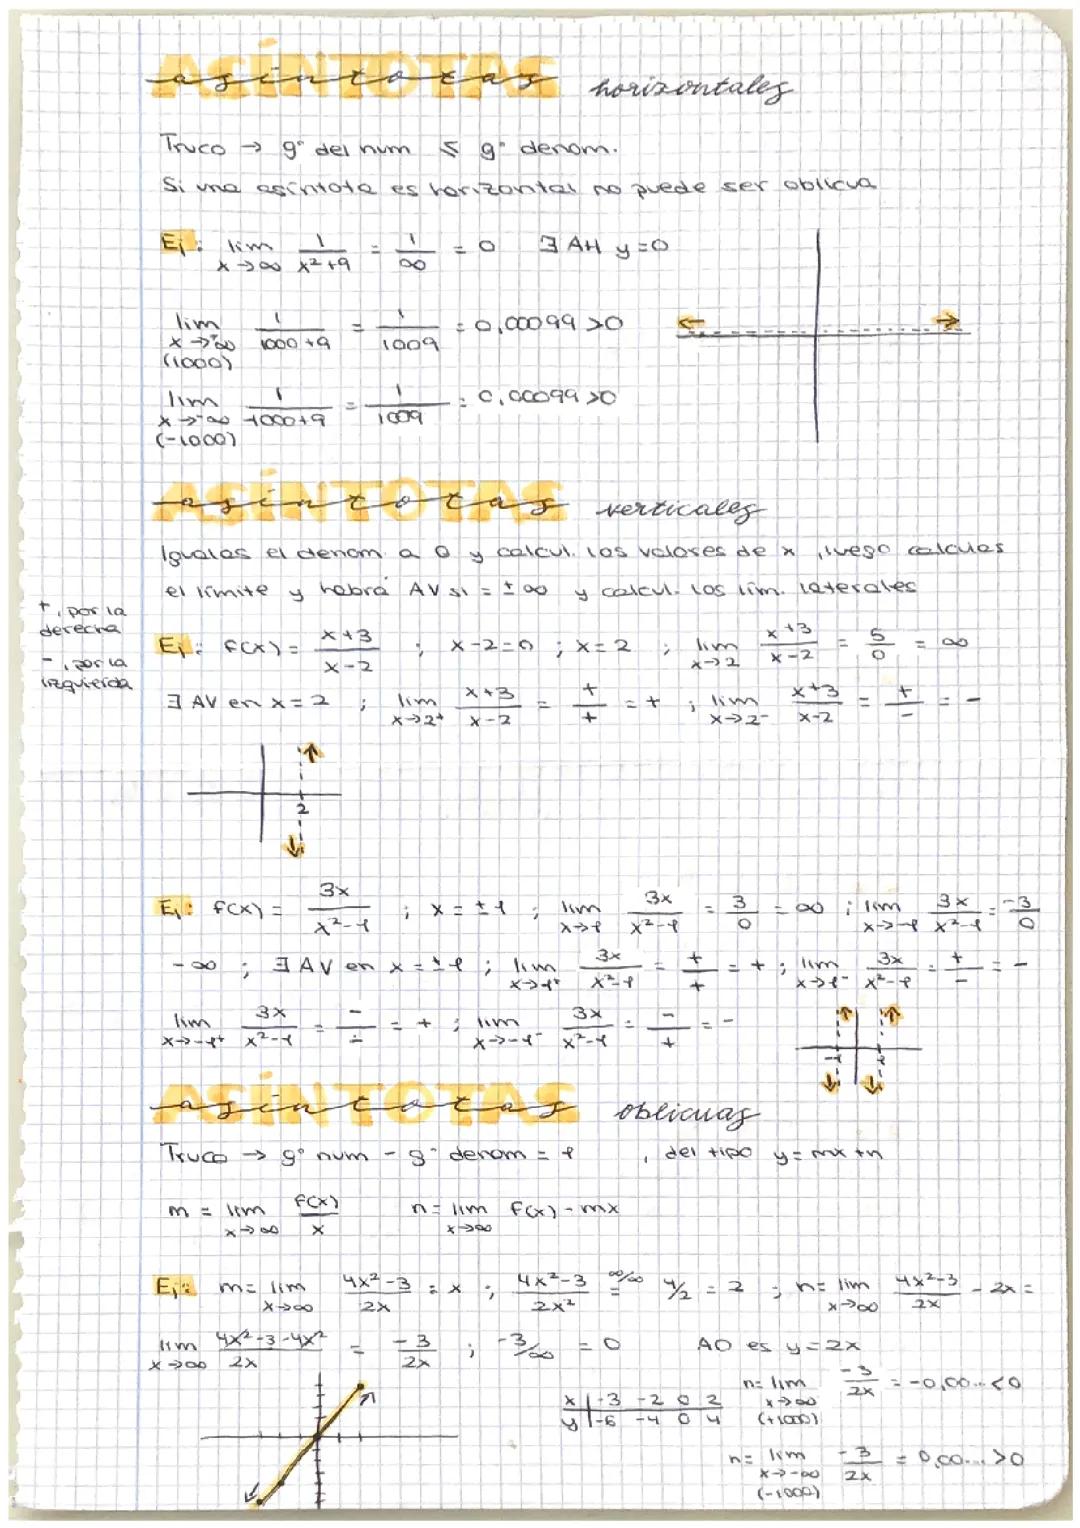 ASÍNTOTAS asíntotas horizontales
Truco → gº del num ≤ gº denom.
Si una asíntota es horizontal no puede ser oblicua
Ej: lim x→∞ 1/(x²+9) = 1/∞ = 0 ∃ AH y=0
lim x→∞ (1000) 1/(1000+9) = 1/1009 = 0,00099 >0
lim x→-∞ (-1000) 1/(1000+9) = 1/1009 = 0,00099 >0
ASÍNTOTAS asíntotas verticales
Igualas el denom. a 0 y calcul. los valores de x, luego calculas
el límite y habrá AV si = ±∞ y calcul. los lim. laterales
+, por la derecha
-, por la izquierda
Ej: f(x) = (x+3)/(x-2) ; x-2=0 ; x=2 ; lim x→2 (x+3)/(x-2) = 5/0 = ∞
∃ AV en x=2 ; lim x→2+ (x+3)/(x-2) = +/+ = + ; lim x→2- (x+3)/(x-2) = +/- = -
2
Ej: f(x) = 3x/(x²-1) ; x=±1 ; lim x→1 3x/(x²-1) = 3/0 = ∞ ; lim x→-1 3x/(x²-1) = -3/0
-∞ ; ∃ AV en x=±1 ; lim x→1+ 3x/(x²-1) = +/+ = + ; lim x→1- 3x/(x²-1) = +/- = -
lim x→-1+ 3x/(x²-1) = -/- = + ; lim x→-1- 3x/(x²-1) = -/+ = -
-1 1
ASÍNTOTAS asíntotas oblicuas
Truco → gº num - gº denom = 1 , del tipo y=mx+n
m = lim x→∞ f(x)/x n= lim x→∞ f(x)-mx
Ej: m= lim x→∞ (4x²-3)/2x : x ; (4x²-3)/2x² =∞/∞ 4/2 = 2 ; n= lim x→∞ (4x²-3)/2x - 2x =
lim x→∞ (4x²-3-4x²)/2x = -3/2x ; -3/∞ = 0 AO es y=2x
x | -3 -2 0 2
y | -6 -4 0 4
n= lim x→∞ (+1000) -3/2x = -0,00... <0
n= lim x→-∞ (-1000) -3/2x = 0,00... >0